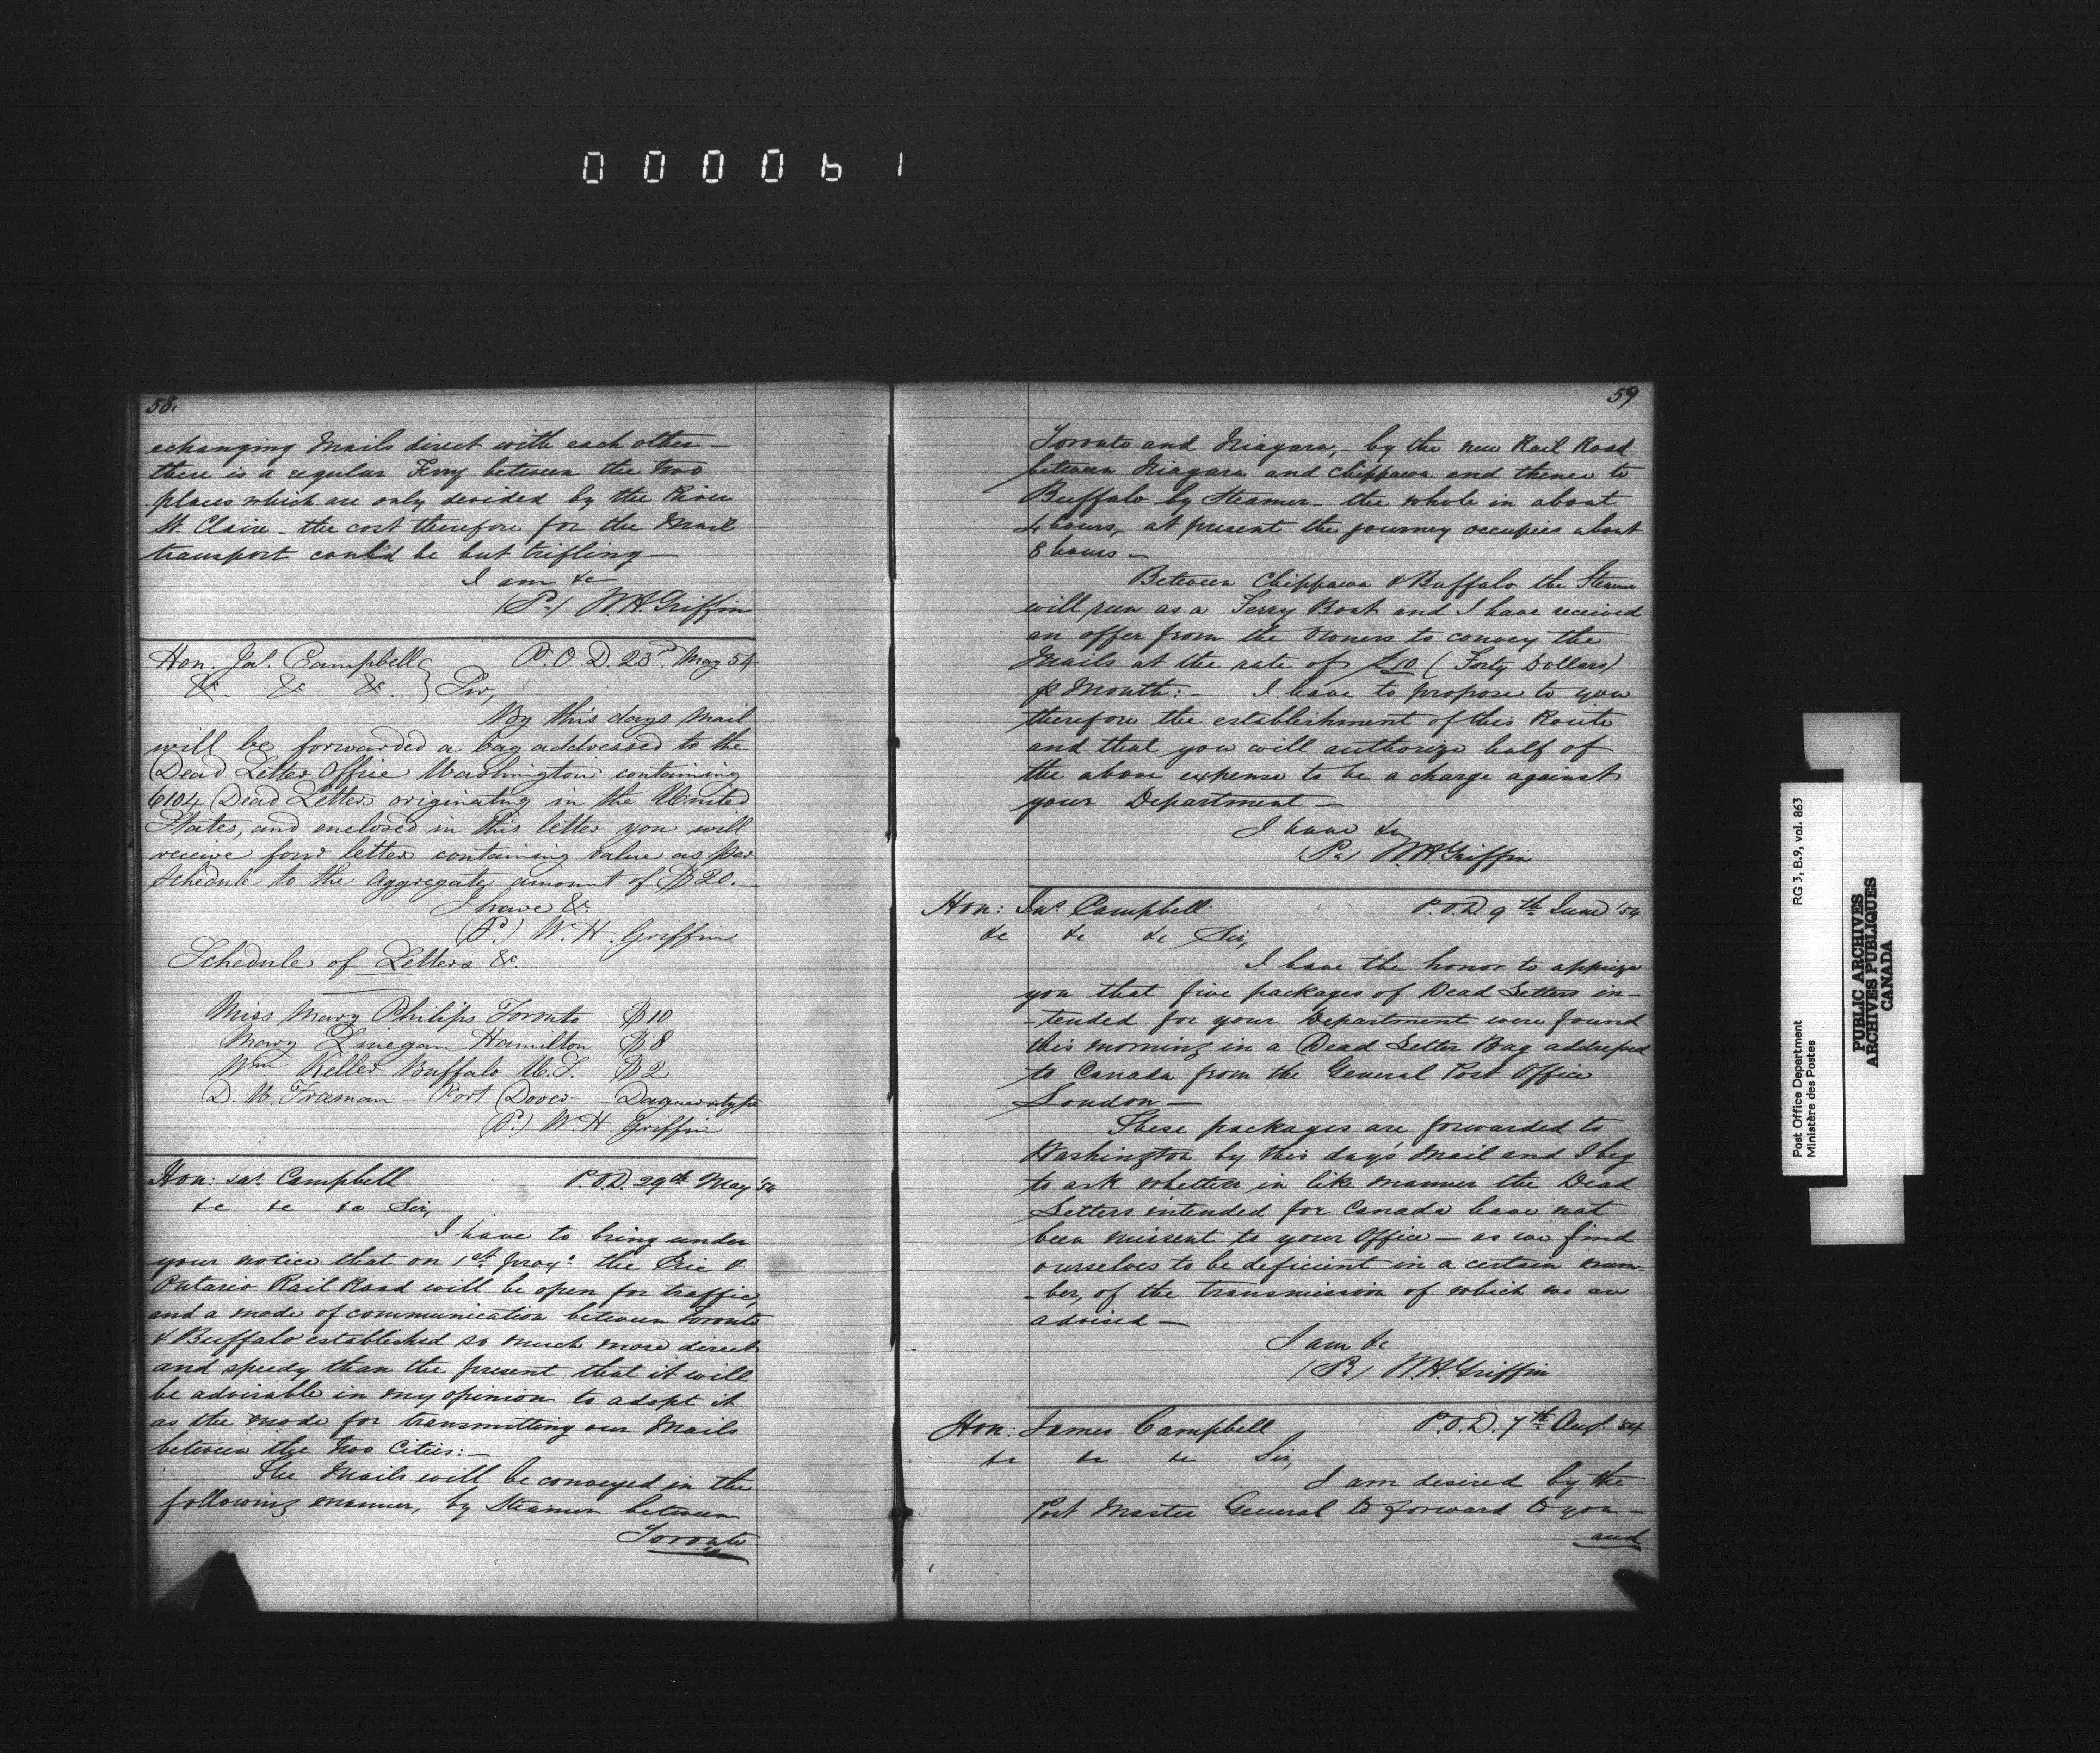 000061
58.
echanging Mails direct with each other —
there is a regular Ferry between the two
places which are only devided by the River
St. Clair — the cost therefore for the Mail
transport could be but trifling —
I am &c
(P.) W. H. Griffin
Hon. Jas. Campbell P.O.D. 23rd May 54
&c &c &c } Sir,
By this days Mail
will be forwarded a bag addressed to the
Dead Letter Office Washington containing
6104 Dead Letters originating in the United
States, and enclosed in this letter you will
receive four letters containing value as per
Schedule to the Aggregate amount of $20. —
I have &c.
(P.) W. H. Griffin
Schedule of Letters &c.
Miss Mary Philips Toronto $10
Mary Linegan Hamilton $8
Wm Keller Buffalo U.S. $2
D. W. Freeman — Port Dover — Daguerotype
(P.) W. H. Griffin
Hon: Jas. Campbell P.O.D. 29th May '54
&c &c &c Sir,
I have to bring under
your notice that on 1st proxo the Erie &
Ontario Rail Road will be open for traffic,
and a mode of communication between Toronto
& Buffalo established so much more direct
and speedy than the present that it will
be advisable in my opinion to adopt it
as the mode for transmitting our Mails
between the two Cities: —
The Mails will be conveyed in the
following manner, by Steamer between
Toronto
59
Toronto and Niagara, — by the new Rail Road
between Niagara and Chippawa and thence to
Buffalo by Steamer — the whole in about
4 hours, at present the journey occupies about
8 hours —
Between Chippawa & Buffalo the Steamer
will run as a Ferry Boat and I have received
an offer from the Owners to convey the
Mails at the rate of £10 (Forty Dollars)
p Month: — I have to propose to you
therefore the establishment of this Route
and that you will authorize half of
the above expense to be a charge against
your Department —
I have &c
(P.) W. H. Griffin
Hon: Jas. Campbell P.O.D. 9th June '54
&c &c &c Sir,
I have the honor to apprize
you that five packages of Dead Letters in-
-tended for your Department were found
this morning in a Dead Letter Bag addressed
to Canada from the General Post Office
London —
These packages are forwarded to
Washington by this day's Mail and I beg
to ask whether in like manner the Dead
Letters intended for Canada have not
been missent to your Office — as we find
ourselves to be deficient in a certain num-
-ber, of the transmission of which we are
advised —
I am &c
(P.) W. H. Griffin
Hon: James Campbell P.O.D. 7th Aug. '54
&c &c &c Sir,
I am desired by the
Post Master General to forward to you —
and
RG 3, B.9, vol. 863
Post Office Department
Ministère des Postes
PUBLIC ARCHIVES
ARCHIVES PUBLIQUES
CANADA